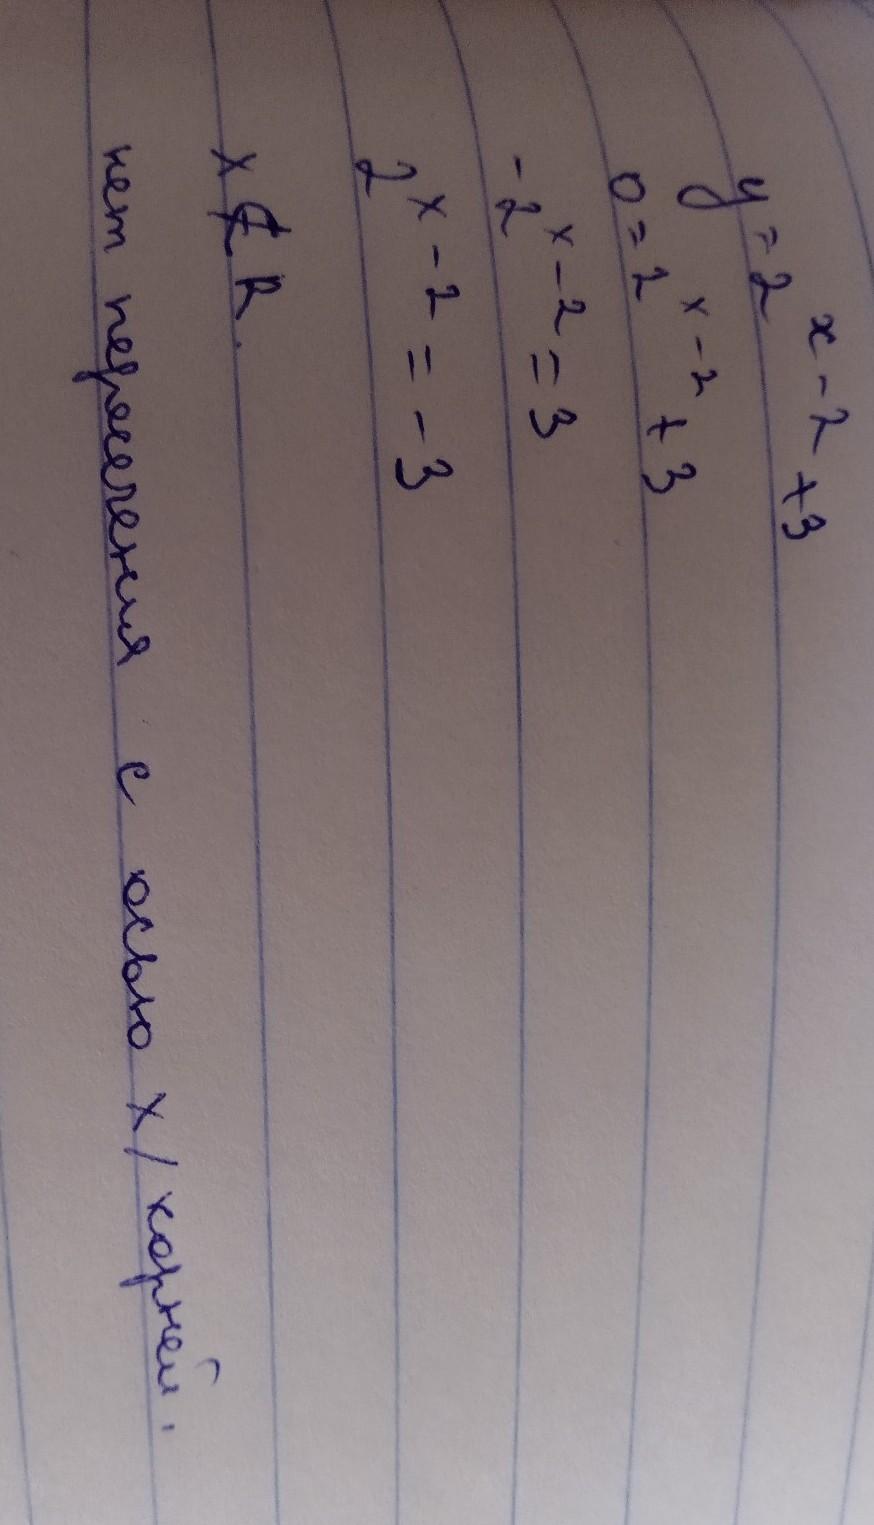 y = 2^{x-2} + 3
0 = 2^{x-2} + 3
-2^{x-2} = 3
2^{x-2} = -3
x ∉ R.
нет пересечения с осью x / корней.